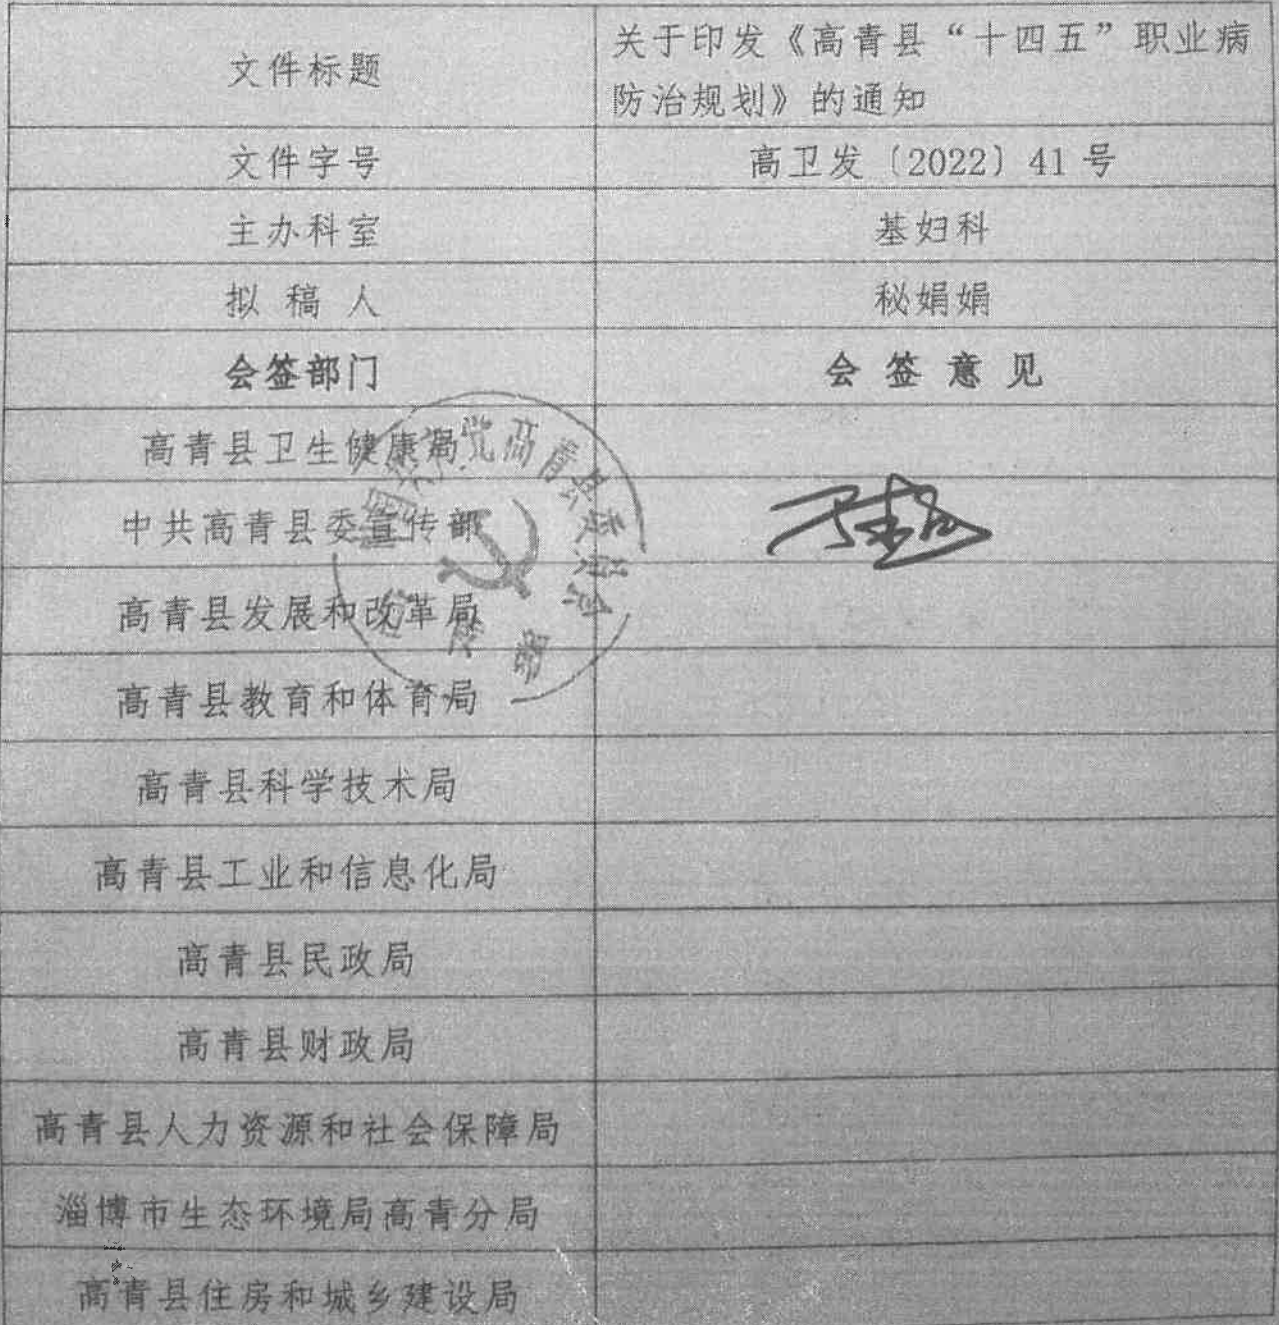 文件标题
关于印发《高青县“十四五”职业病
防治规划》的通知
文件字号
高卫发〔2022〕41号
主办科室
基妇科
拟 稿 人
秘娟娟
会签部门
会 签 意 见
高青县卫生健康局
中共高青县委宣传部
高青县发展和改革局
高青县教育和体育局
高青县科学技术局
高青县工业和信息化局
高青县民政局
高青县财政局
高青县人力资源和社会保障局
淄博市生态环境局高青分局
高青县住房和城乡建设局
中国共产党高青县委员会
宣传部